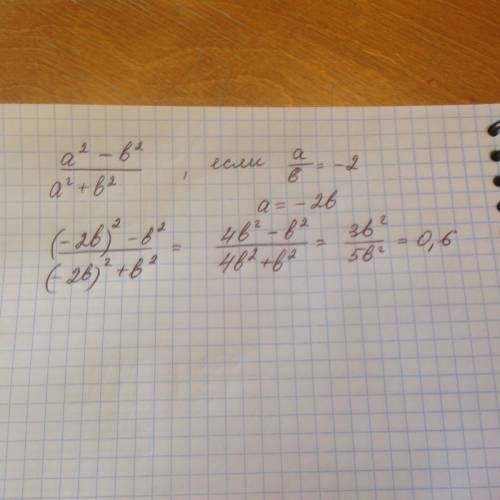 a² − b² / a² + b² , если a/b = −2
a = −2b
(−2b)² − b² / (−2b)² + b² = 4b² − b² / 4b² + b² = 3b² / 5b² = 0,6